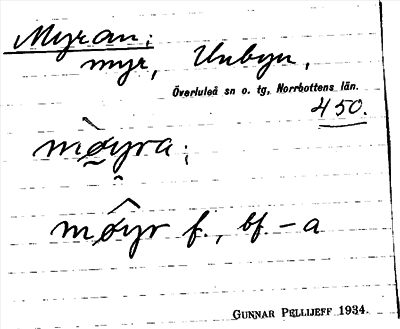 Myran;
myr, Unbyn,
Överluleå sn o. tg, Norrbottens län.
450.
mø̀yra;
mø̂yr f., bf. -a
GUNNAR PELLIJEFF 1934.